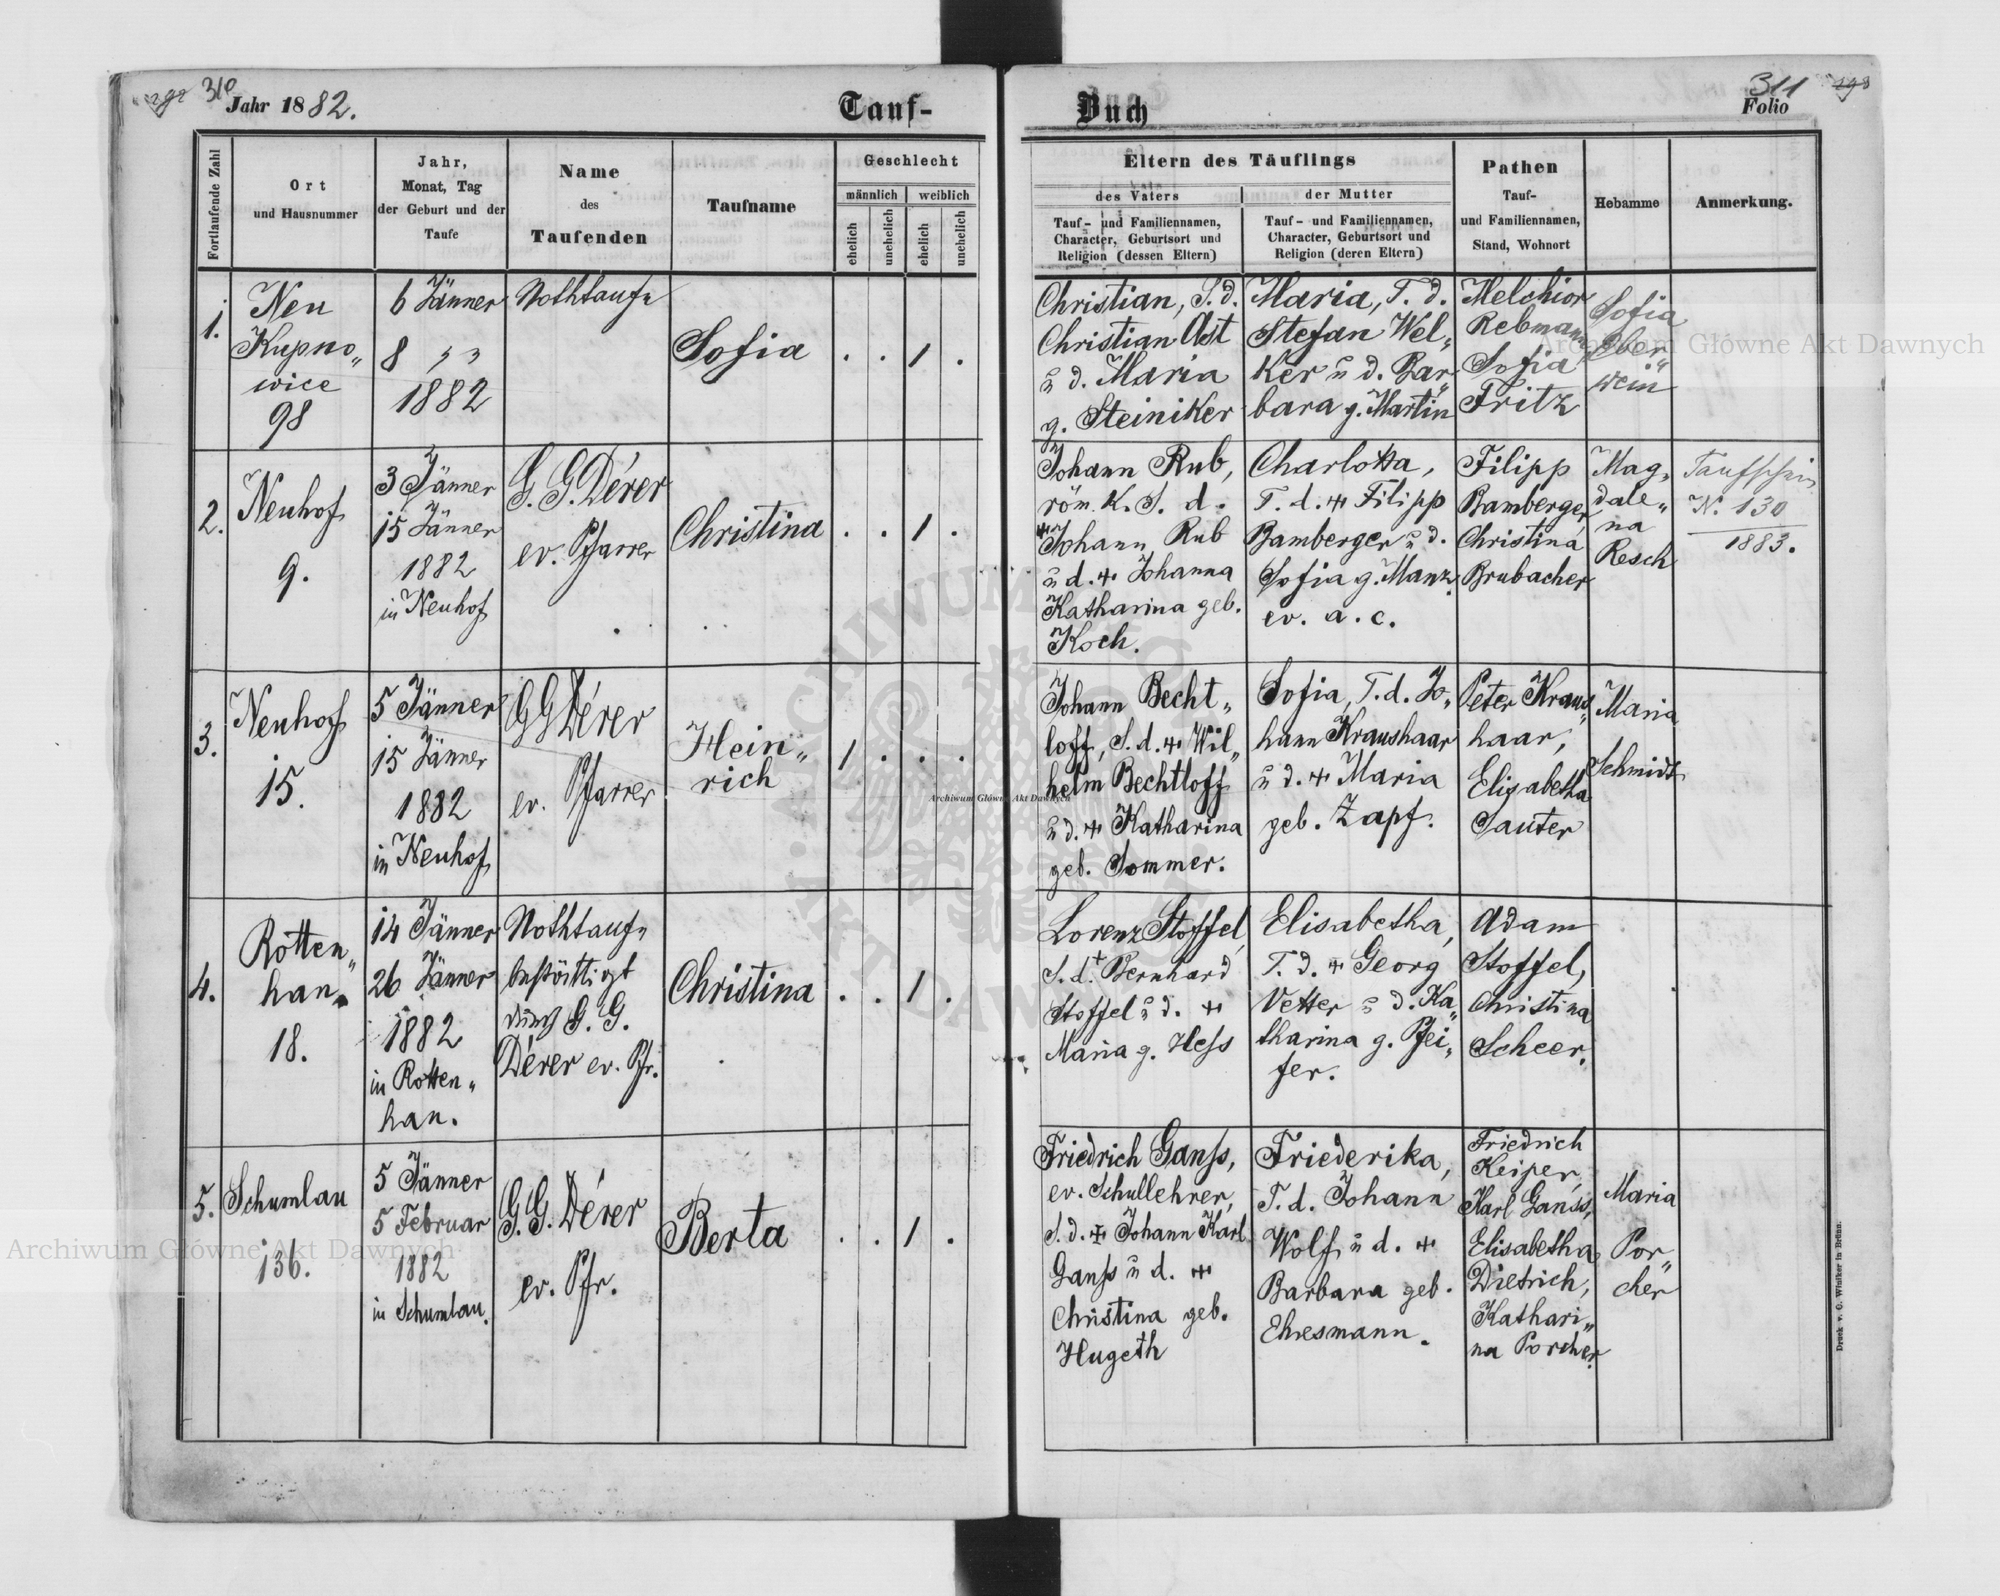 310
Jahr 1882.
Tauf-
Fortlaufende Zahl
Ort
und Hausnummer
Jahr,
Monat, Tag
der Geburt und der
Taufe
Name
des
Taufenden
Taufname
Geschlecht
männlich
weiblich
ehelich
unehelich
ehelich
unehelich
1.
Neu
Kupno„
wice
98
6 Jänner
8 „
1882
Nothtaufe
Sofia
. . 1 .
2.
Neuhof
9.
3 Jänner
15 Jänner
1882
in Neuhof
G. G. Dérer
ev. Pfarrer
Christina
. . 1 .
3.
Neuhof
15.
5 Jänner
15 Jänner
1882
in Neuhof
G G Dérer
ev. Pfarrer
Hein„
rich
1 . . .
4.
Rotten„
han
18.
14 Jänner
26 Jänner
1882
in Rotten„
han.
Nothtaufe
bestättigt
durch G. G.
Dérer ev. Pfr.
Christina
. . 1 .
5.
Schumlau
136.
5 Jänner
5 Februar
1882
in Schumlau.
G. G. Dérer
ev. Pfr.
Berta
. . 1 .
311
298
Buch
Folio
Eltern des Täuflings
des Vaters
der Mutter
Tauf- und Familiennamen,
Character, Geburtsort und
Religion (dessen Eltern)
Tauf- und Familiennamen,
Character, Geburtsort und
Religion (deren Eltern)
Pathen
Tauf-
und Familiennamen,
Stand, Wohnort
Hebamme
Anmerkung.
Christian, S. d.
Christian Ast
u d. Maria
g. Steiniker
Maria, T. d.
Stefan Wel„
Ker u d. Bar„
bara g. Martin
Melchior
Rebmann
Sofia
Fritz
Sofia
Eber„
wein
Johann Rub,
röm. K. S. d.
+ Johann Rub
u d. + Johanna
Katharina geb.
Koch.
Charlotta,
T. d. + Filipp
Bamberger u d.
Sofia g. Manz.
ev. a. c.
Filipp
Bamberger,
Christina
Brubacher
Mag„
dale„
na
Resch
Taufschein
N. 130
1883.
Johann Becht„
loff, S. d. + Wil„
helm Bechtloff
u d. + Katharina
geb. Sommer.
Sofia, T. d. Jo„
hann Kraushaar
u d. + Maria
geb. Zapf.
Peter Kraus„
haar,
Elisabetha
Sauter
Maria
Schmidt
Lorenz Stoffel,
S. d. + Bernhard
Stoffel u d. +
Maria g. Hess
Elisabetha,
T. d. + Georg
Vetter u d. Ka„
tharina g. Pfei„
fer.
Adam
Stoffel,
Christina
Scheer.
Friedrich Ganss,
ev. Schullehrer,
S. d. + Johann Karl
Ganss u d. +
Christina geb.
Hugeth
Friederika,
T. d. Johann
Wolf u d. +
Barbara geb.
Ehresmann.
Friedrich
Keiper,
Karl Ganss,
Elisabetha
Dietrich,
Kathari„
na Porcher.
Maria
Por„
cher
Druck v. C. Winiker in Brünn.
Archiwum Główne Akt Dawnych
Archiwum Główne Akt Dawnych
Archiwum Główne Akt Dawnych
ARCHIWUM
AKT DAWNYCH